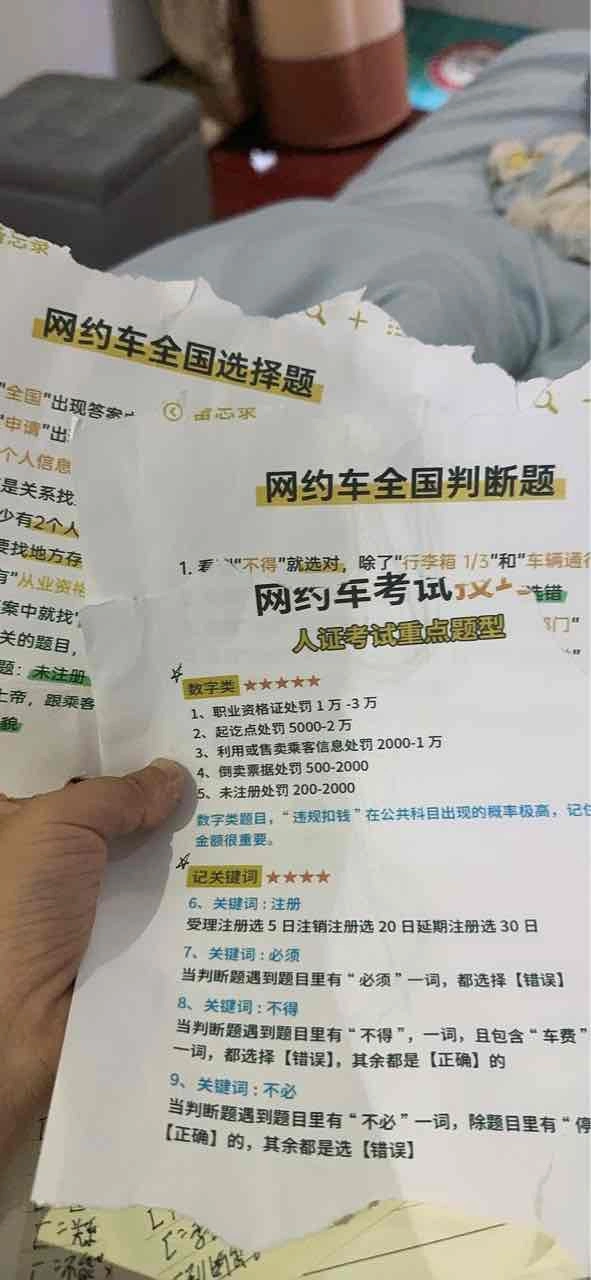 备忘录
网约车全国选择题
"全国"出现答案
"申请"出
个人信息
是关系找
少有2个人
要找地方存
有"从业资格
案中就找"
关的题目，
题：未注册
上帝，跟乘客
貌
备忘录
网约车全国判断题
1. 看 "不得"就选对，除了"行李箱 1/3"和"车辆通行
选错
部门"
网约车考试
人证考试重点题型
数字类★★★★★
1、职业资格证处罚 1 万 -3 万
2、起讫点处罚 5000-2 万
3、利用或售卖乘客信息处罚 2000-1 万
4、倒卖票据处罚 500-2000
5、未注册处罚 200-2000
数字类题目，“违规扣钱”在公共科目出现的概率极高，记住
金额很重要。
记关键词★★★★
6、关键词：注册
受理注册选 5 日注销注册选 20 日延期注册选 30 日
7、关键词：必须
当判断题遇到题目里有“必须”一词，都选择【错误】
8、关键词：不得
当判断题遇到题目里有“不得”，一词，且包含“车费”
一词，都选择【错误】，其余都是【正确】的
9、关键词：不必
当判断题遇到题目里有“不必”一词，除题目里有“停
【正确】的，其余都是选【错误】